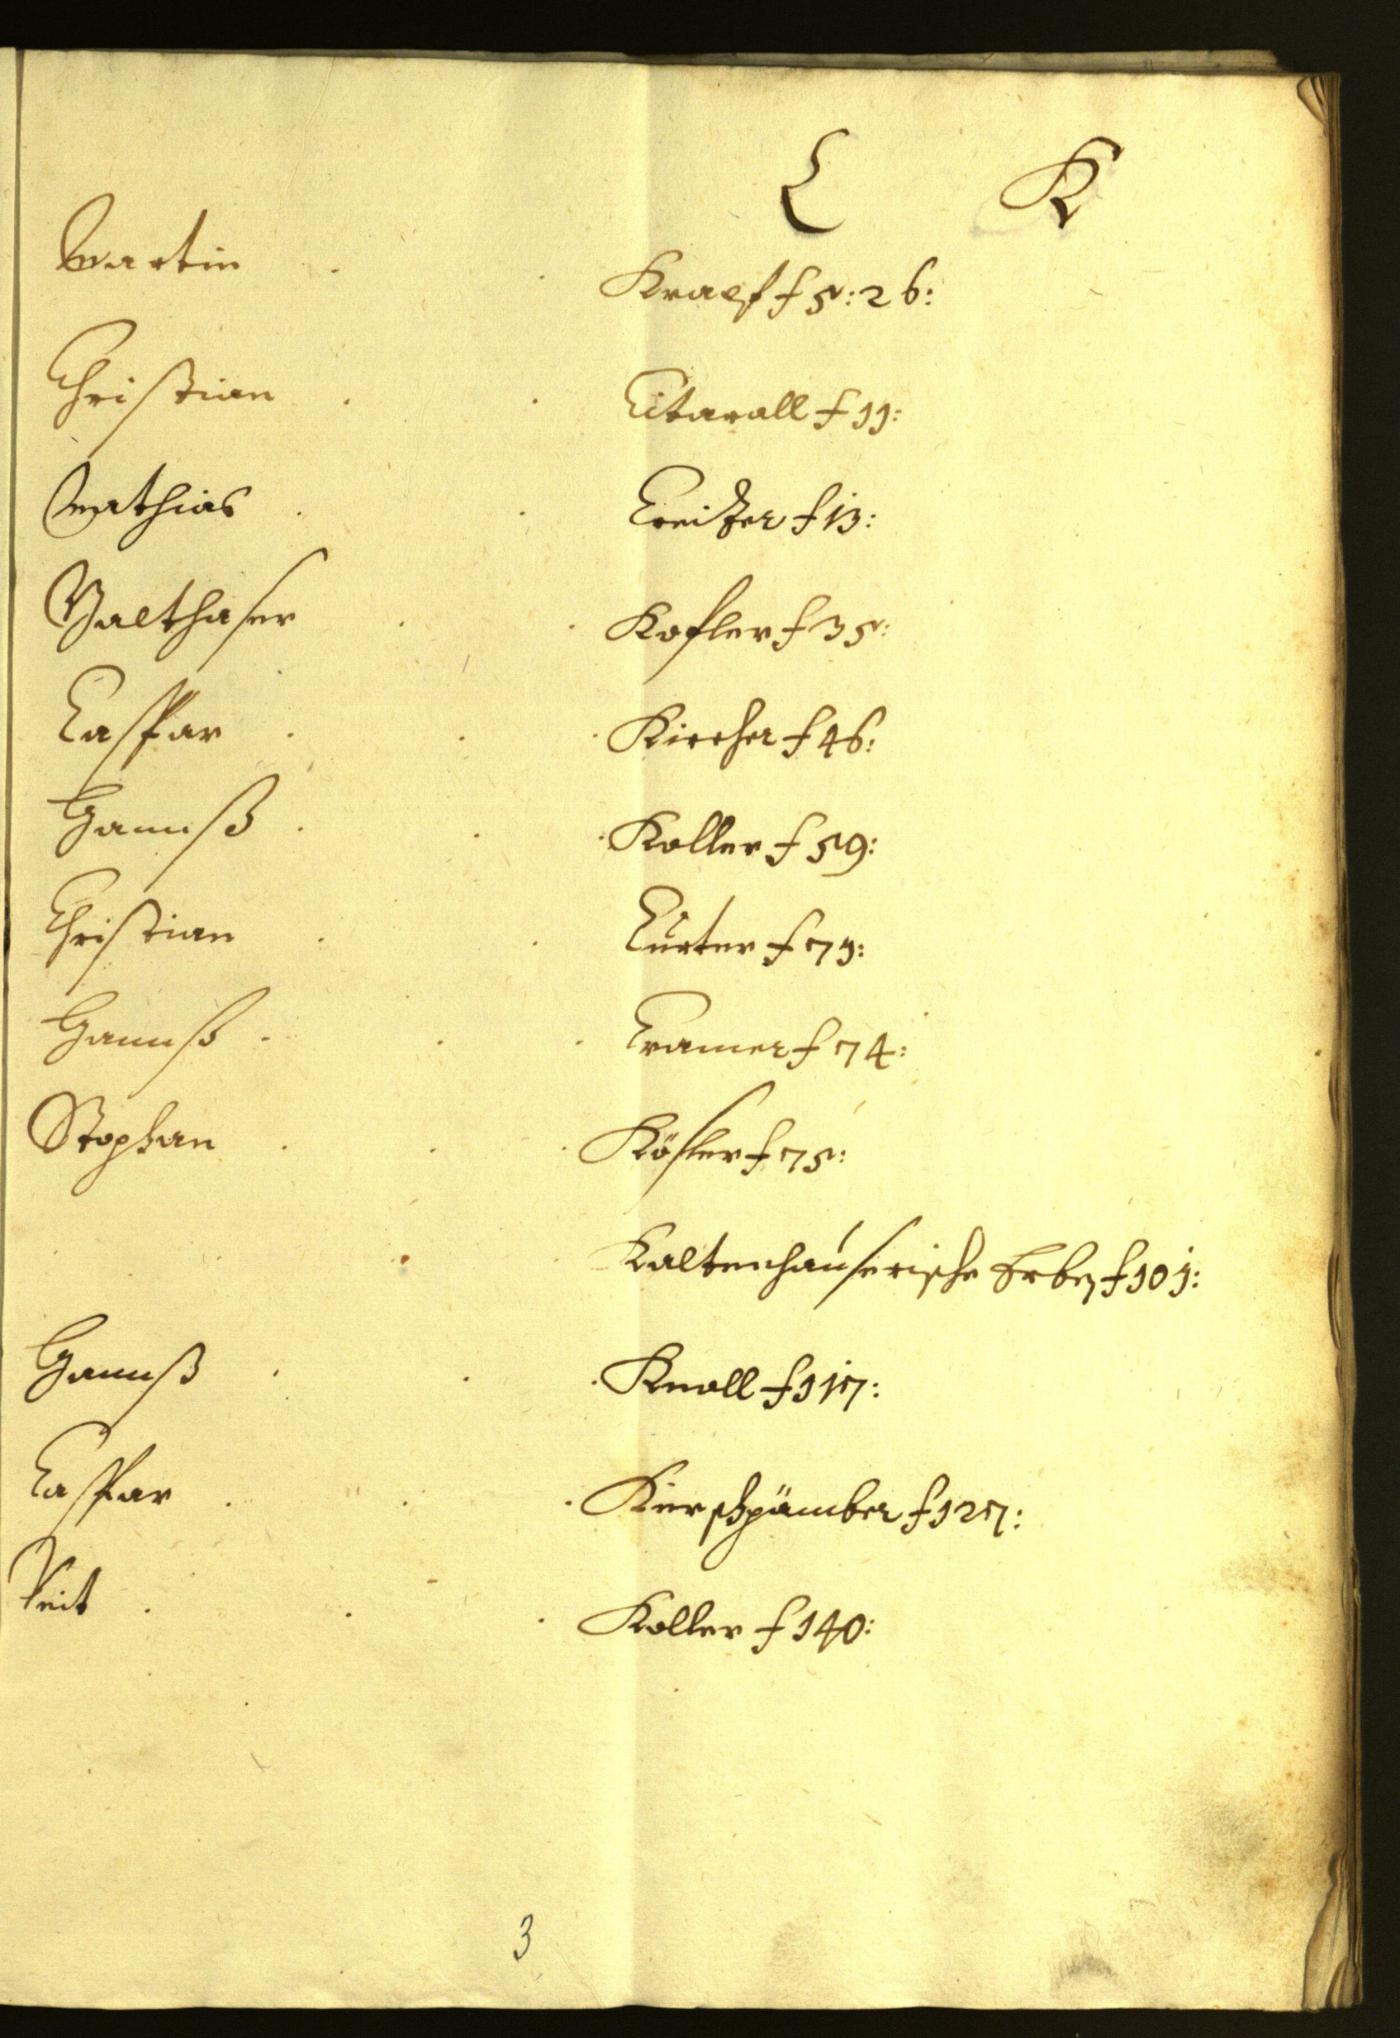 C K
Martin . . Kraeff f 5: 26:
Christian . . Citarall f 11:
Mathias . . Creitzer f 13:
Balthaser . . Kofler f 35:
Casspar . . . Kircher f 46:
Hannß . . . Koller f 59:
Christian . . Curter f 71:
Hannß . . . Cramer f 74:
Stephan . . . Kösler f 75:
Kaltenhauserische Erben f 101:
Hannß . . . Knoll f 117:
Casspar . . . Kierschpämber f 127:
Veit . . . Koller f 140:
3